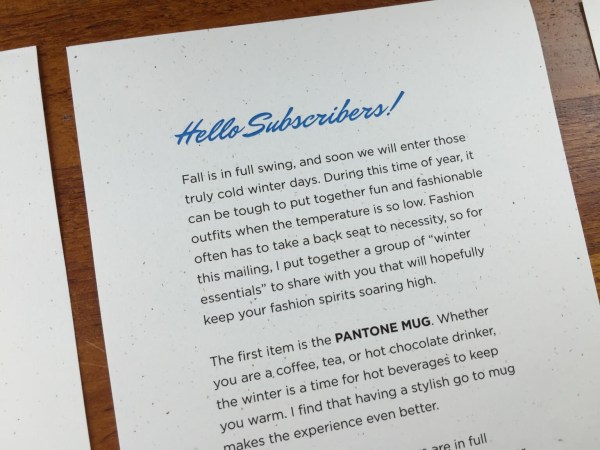 Hello Subscribers!
Fall is in full swing, and soon we will enter those
truly cold winter days. During this time of year, it
can be tough to put together fun and fashionable
outfits when the temperature is so low. Fashion
often has to take a back seat to necessity, so for
this mailing, I put together a group of "winter
essentials" to share with you that will hopefully
keep your fashion spirits soaring high.
The first item is the PANTONE MUG. Whether
you are a coffee, tea, or hot chocolate drinker,
the winter is a time for hot beverages to keep
you warm. I find that having a stylish go to mug
makes the experience even better.
are in full